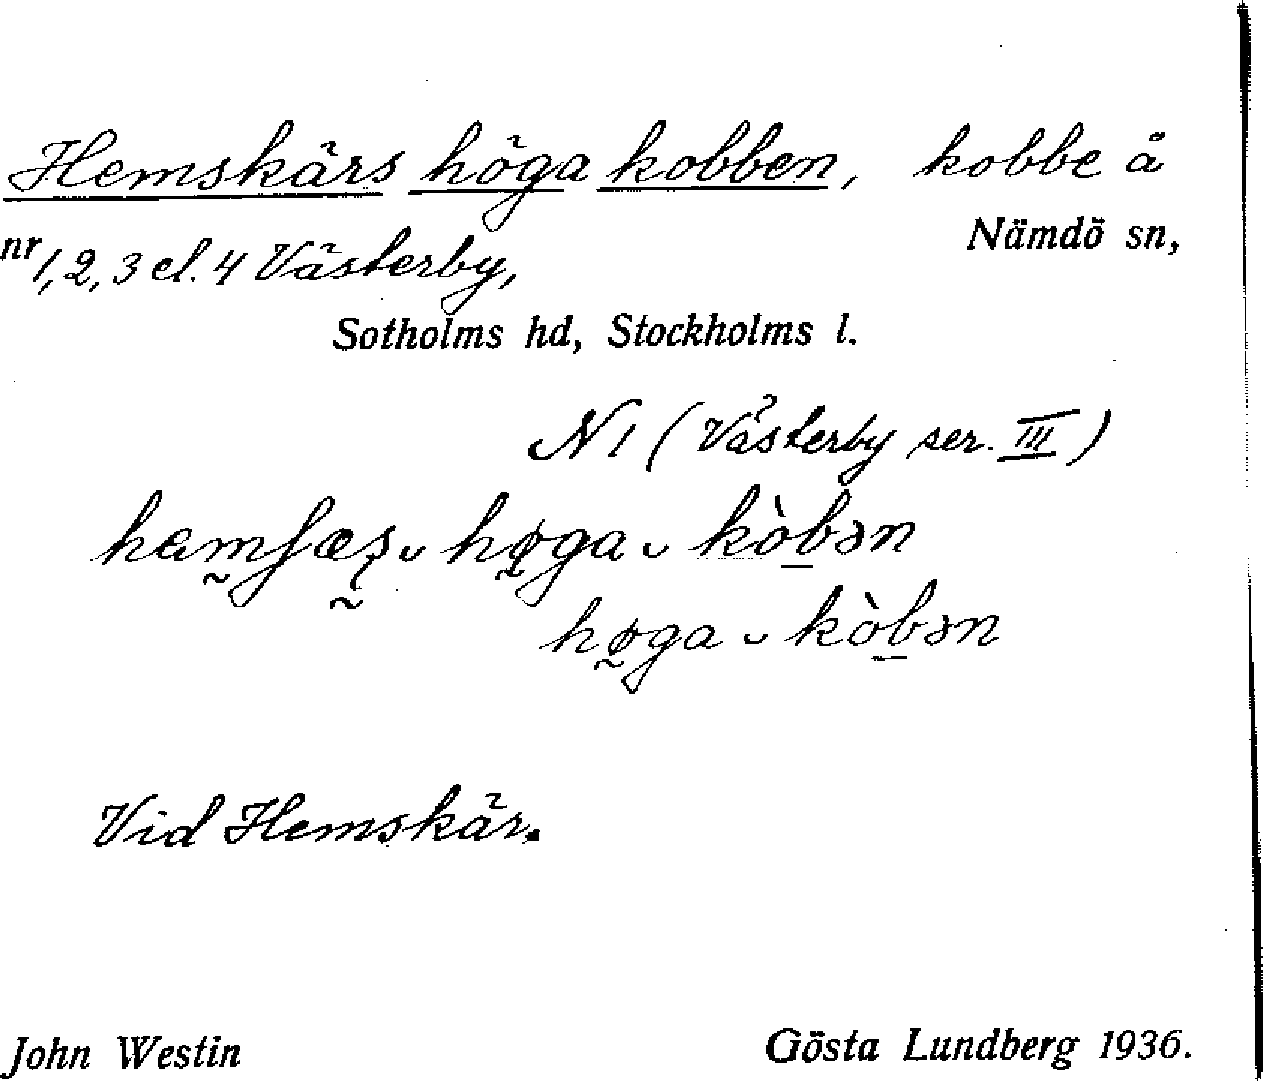 Hemskärs höga kobben, kobbe å
nr 1, 2, 3 el. 4 Västerby, Nämdö sn,
Sotholms hd, Stockholms l.
N1 (Västerby ser. III)
høga ˘ kòbən
Vid Hemskär.
John Westin Gösta Lundberg 1936.